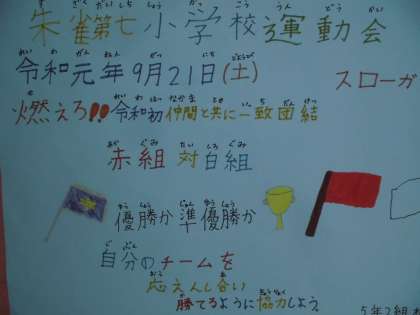 朱雀第七小学校運動会
令和元年9月21日(土)
スローガ
燃えろ!!令和初仲間と共に一致団結
赤組対白組
優勝か準優勝か
自分のチームを
応えんし合い
勝てるように協力しよう。
5年2組